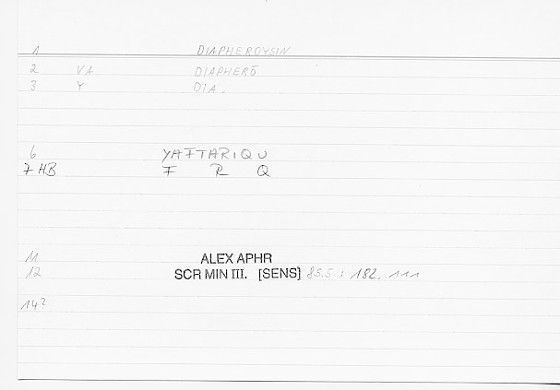 1 DIAPHEROYSIN
2 VA DIAPHERŌ
3 Y DIA.
6 YAFTARIQU
7 HB F R Q
11 ALEX APHR
12 SCR MIN III. [SENS] 85.5 : 182, 111
14?